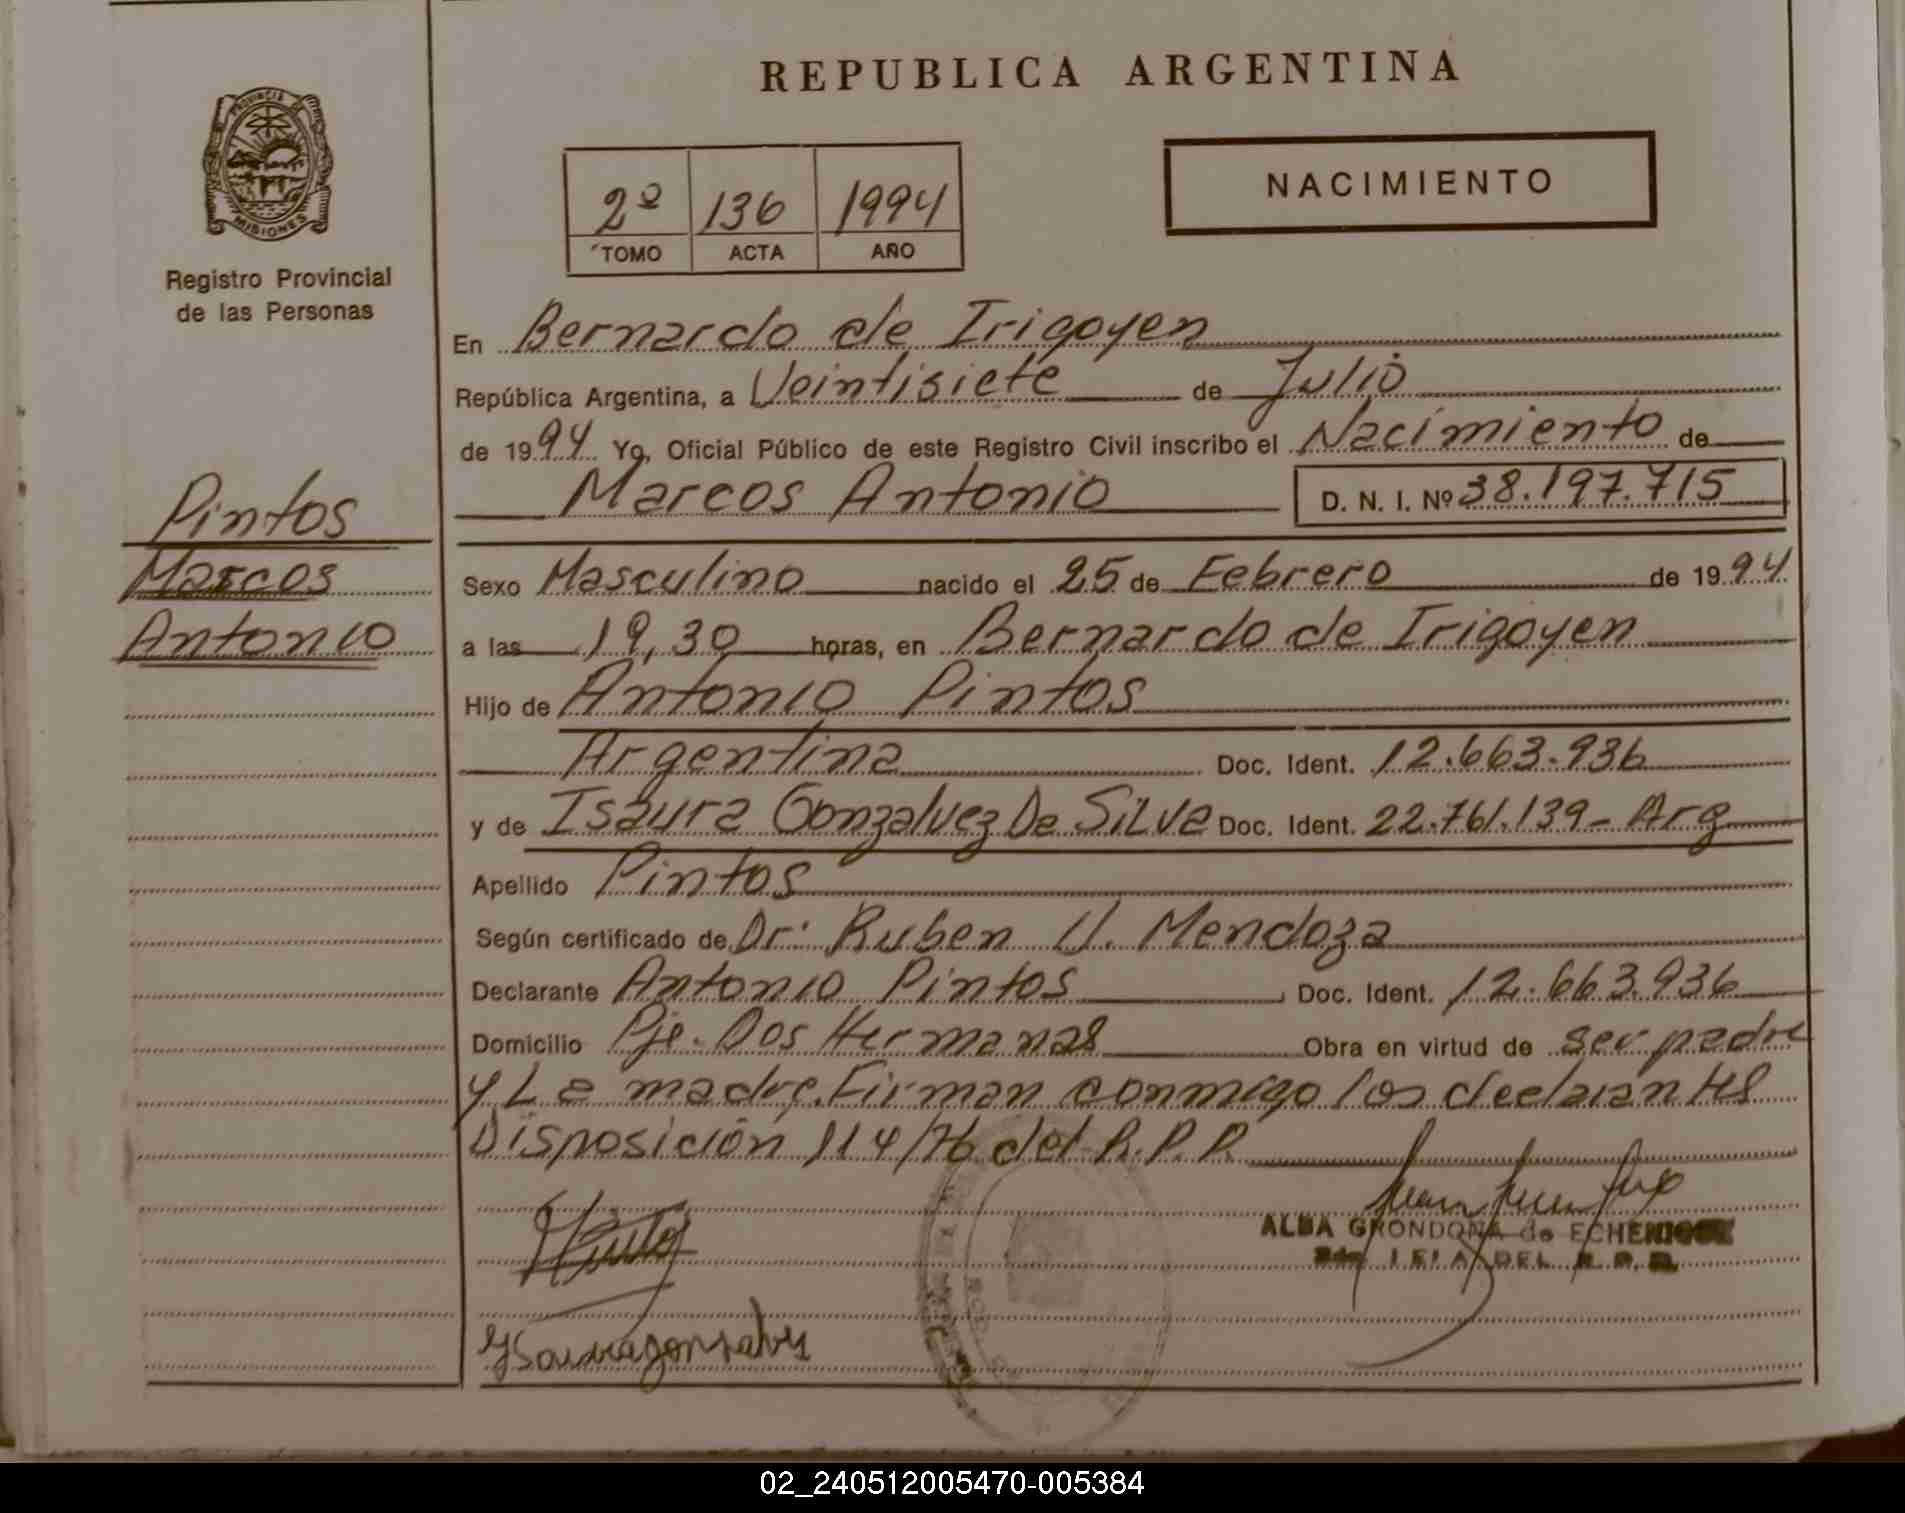 REPUBLICA ARGENTINA
PROVINCIA DE
MISIONES
Registro Provincial
de las Personas
2º 136 1994
TOMO ACTA AÑO
NACIMIENTO
En Bernardo de Irigoyen
República Argentina, a Veintisiete de Julio
de 1994 Yo, Oficial Público de este Registro Civil inscribo el Nacimiento de
Marcos Antonio D. N. I. Nº 38.197.715
Pintos
Marcos
Antonio
Sexo Masculino nacido el 25 de Febrero de 1994
a las 19,30 horas, en Bernardo de Irigoyen
Hijo de Antonio Pintos
Argentina Doc. Ident. 12.663.936
y de Isaura Gonzalvez Da Silva Doc. Ident. 22.761.139- Arg
Apellido Pintos
Según certificado de Dr: Ruben U. Mendoza
Declarante Antonio Pintos Doc. Ident. 12.663.936
Domicilio Pje. Dos Hermanas Obra en virtud de ser padre
y La madre. Firman conmigo los declarantes
Disposición 114/76 del R.P.P.
ALBA GRONDONA de ECHENIQUE
DEL R. P. P.
Isauragonzalvez
02_240512005470-005384